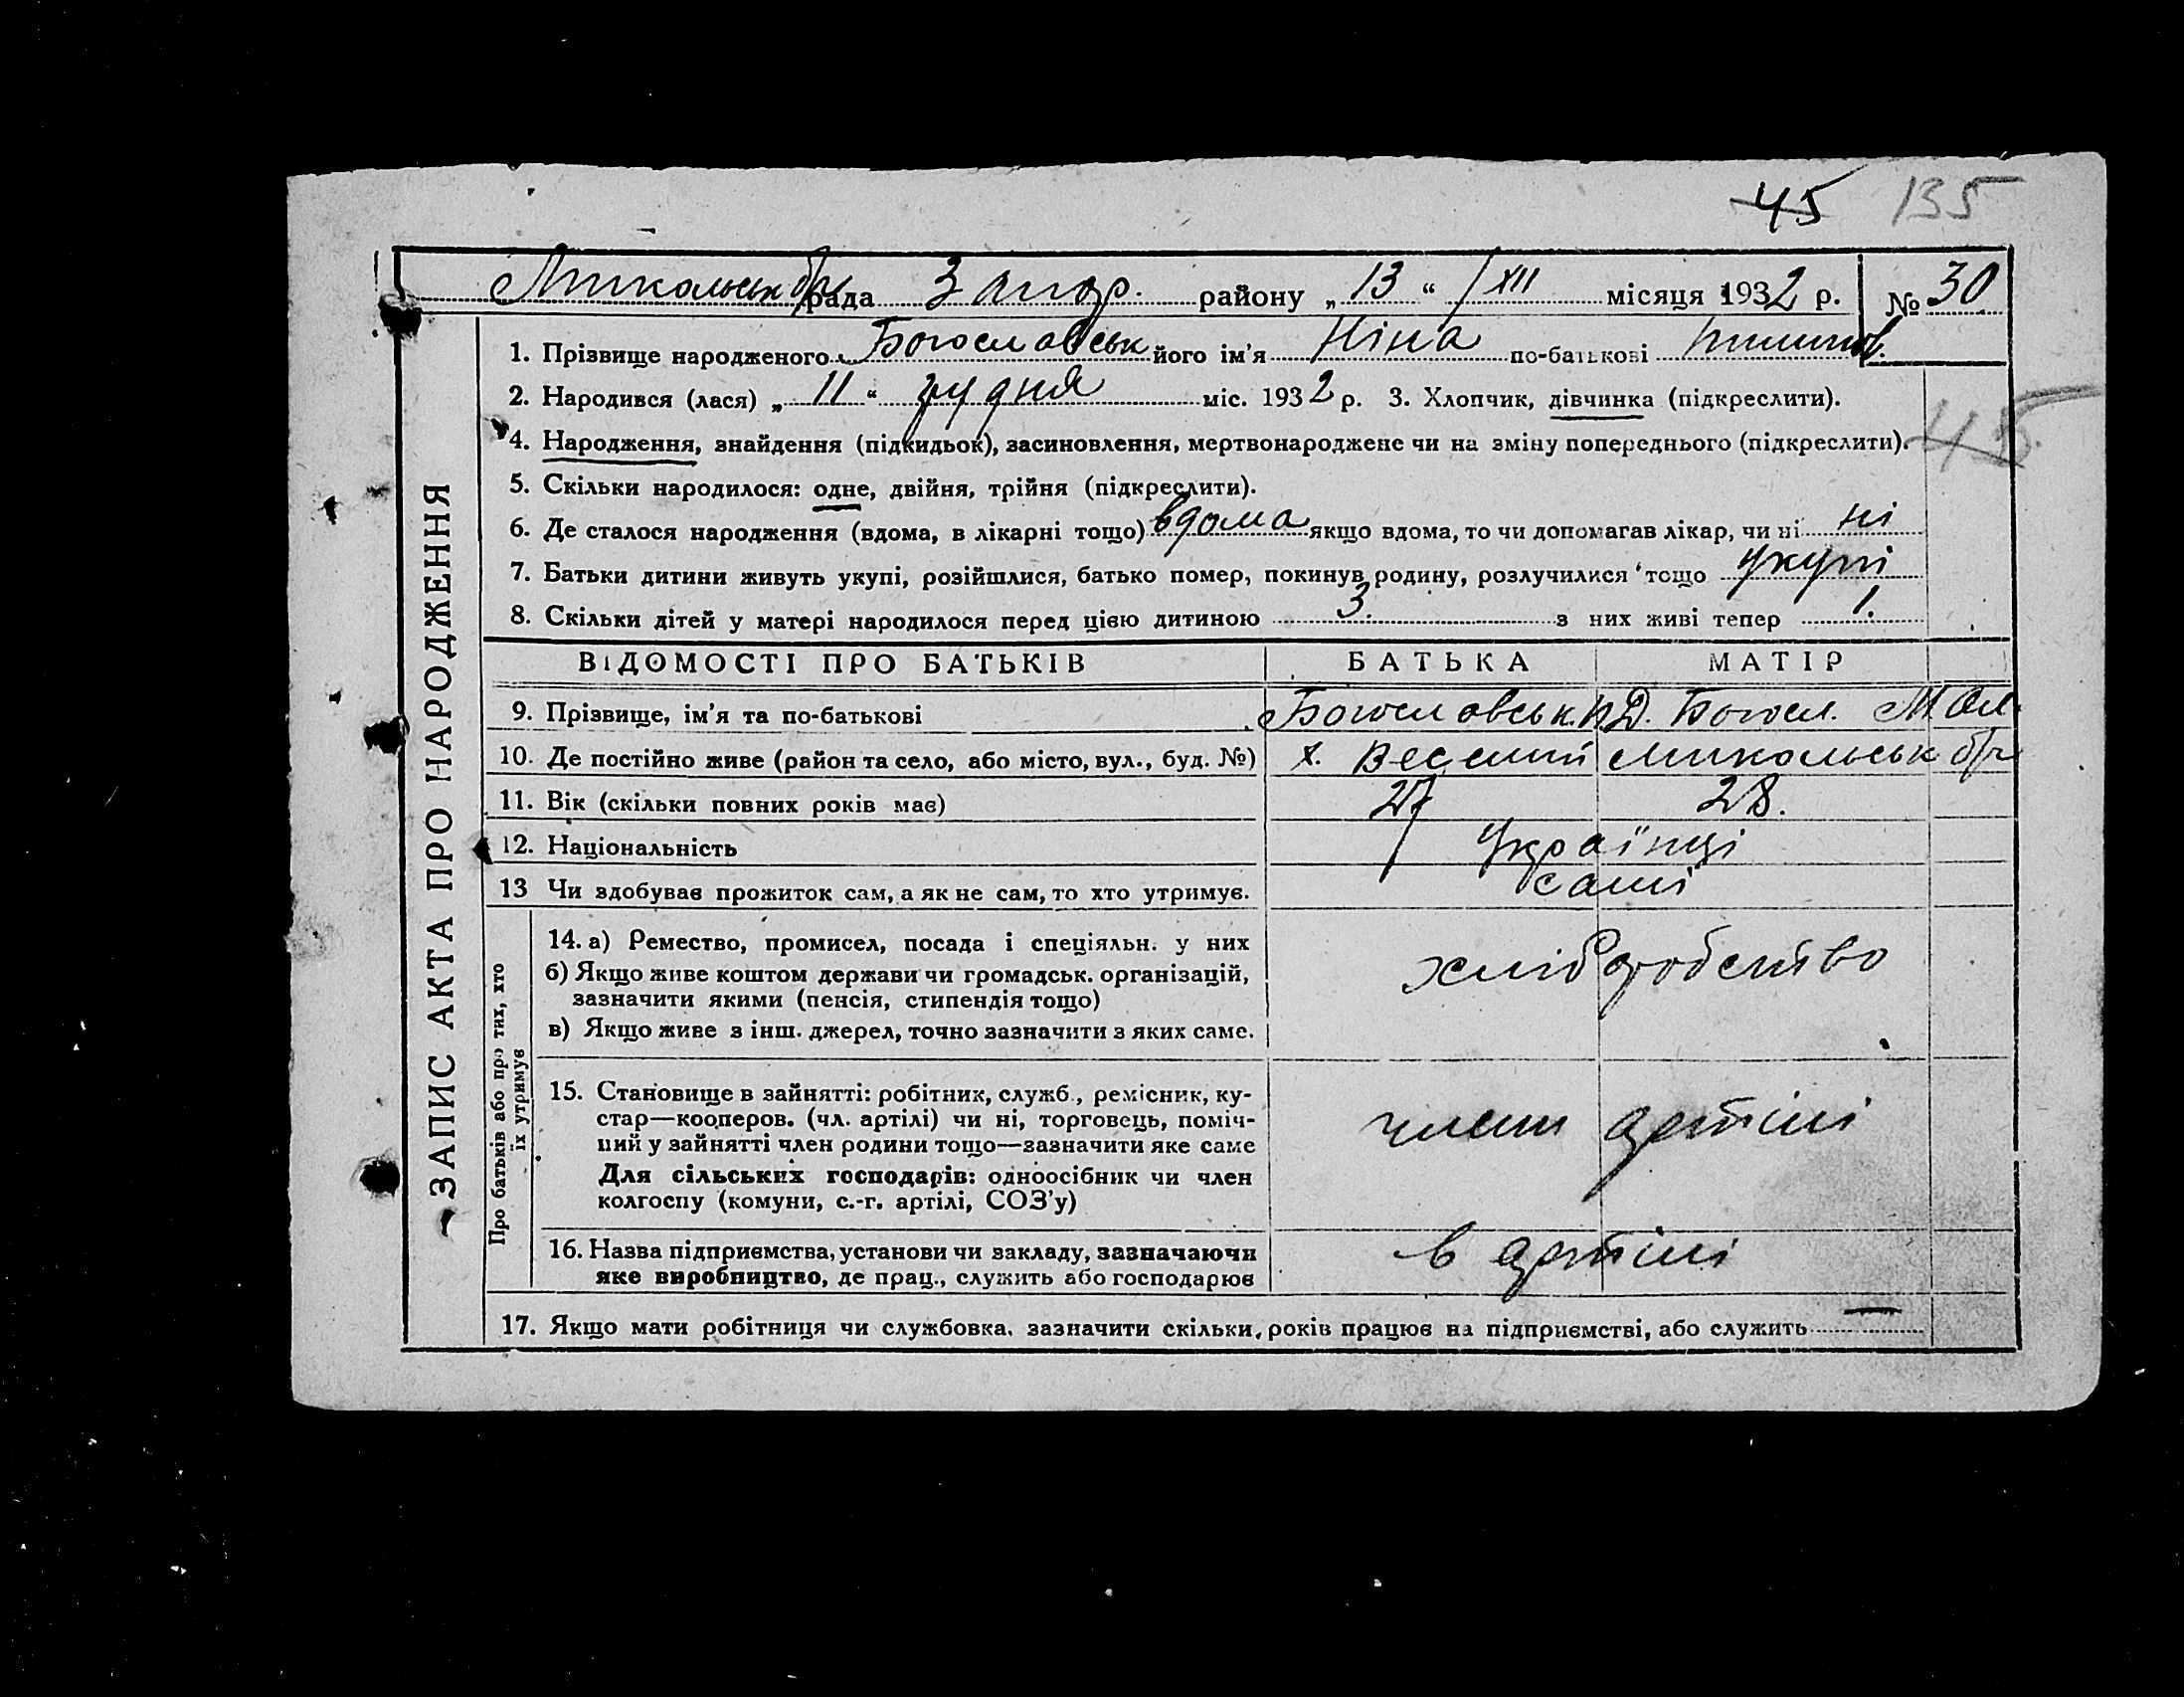 45 135
Микольськ рада Запор. району „13“ XII місяця 1932 р. № 30
1. Прізвище народженого Богословськ його ім'я Ніна по-батькові
2. Народився (лася) „11“ грудня міс. 1932 р. 3. Хлопчик, дівчинка (підкреслити).
4. Народження, знайдення (підкидьок), засиновлення, мертвонароджене чи на зміну попереднього (підкреслити). 45
5. Скільки народилося: одне, двійня, трійня (підкреслити).
6. Де сталося народження (вдома, в лікарні тощо) вдома якщо вдома, то чи допомагав лікар, чи ні ні
7. Батьки дитини живуть укупі, розійшлися, батько помер, покинув родину, розлучилися тощо укупі
8. Скільки дітей у матері народилося перед цією дитиною 3. з них живі тепер 1.
ВІДОМОСТІ ПРО БАТЬКІВ БАТЬКА МАТІР
9. Прізвище, ім'я та по-батькові Богословськ. П. Д. Богосл. М
10. Де постійно живе (район та село, або місто, вул., буд. №) х. Веселий Микольськ
11. Вік (скільки повних років має) 27 28.
12. Національність Українці
13 Чи здобуває прожиток сам, а як не сам, то хто утримує. самі
14. а) Ремество, промисел, посада і спеціяльн. у них
б) Якщо живе коштом держави чи громадськ. організацій,
зазначити якими (пенсія, стипендія тощо)
хліборобство
в) Якщо живе з інш. джерел, точно зазначити з яких саме.
15. Становище в зайнятті: робітник, служб., ремісник, ку-
стар—кооперов. (чл. артілі) чи ні, торговець, поміч-
ний у зайнятті член родини тощо—зазначити яке саме
члени артілі
Для сільських господарів: одноосібник чи член
колгоспу (комуни, с.-г. артілі, СОЗ'у)
16. Назва підприємства, установи чи закладу, зазначаючи
яке виробництво, де прац., служить або господарює
в артілі
17. Якщо мати робітниця чи службовка, зазначити скільки років працює на підприємстві, або служить —
ЗАПИС АКТА ПРО НАРОДЖЕННЯ
Про батьків або про тих, хто
їх утримує